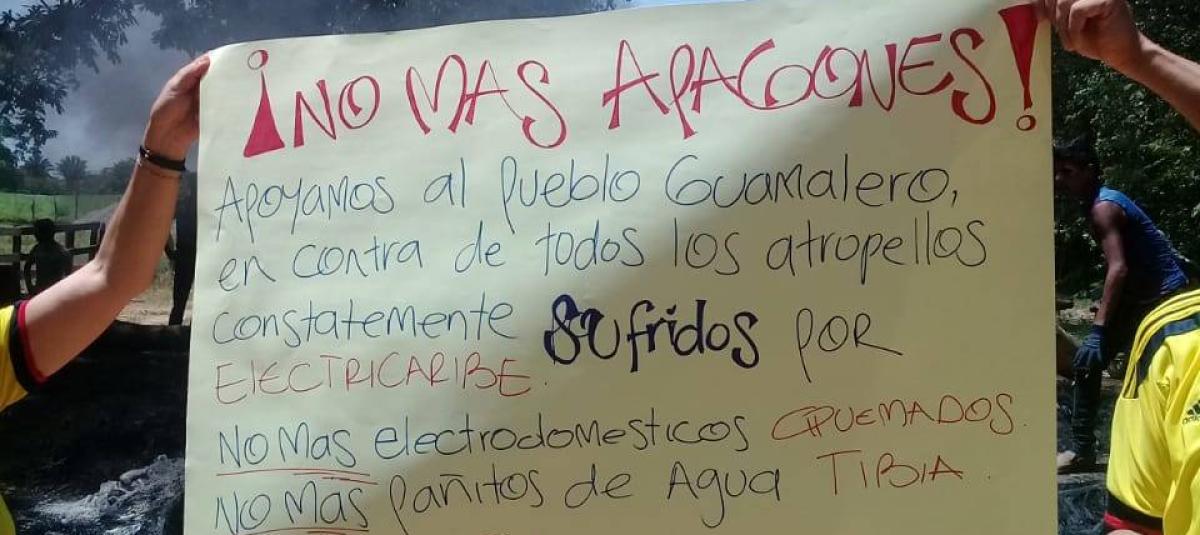 ¡NO MAS APAGONES!
APOYAMOS al pueblo Guamalero,
en contra de todos los atropellos
constatemente Sufridos por
ELECTRICARIBE.
NO MAS electrodomesticos QUEMADOS.
NO MAS pañitos de Agua TIBIA.